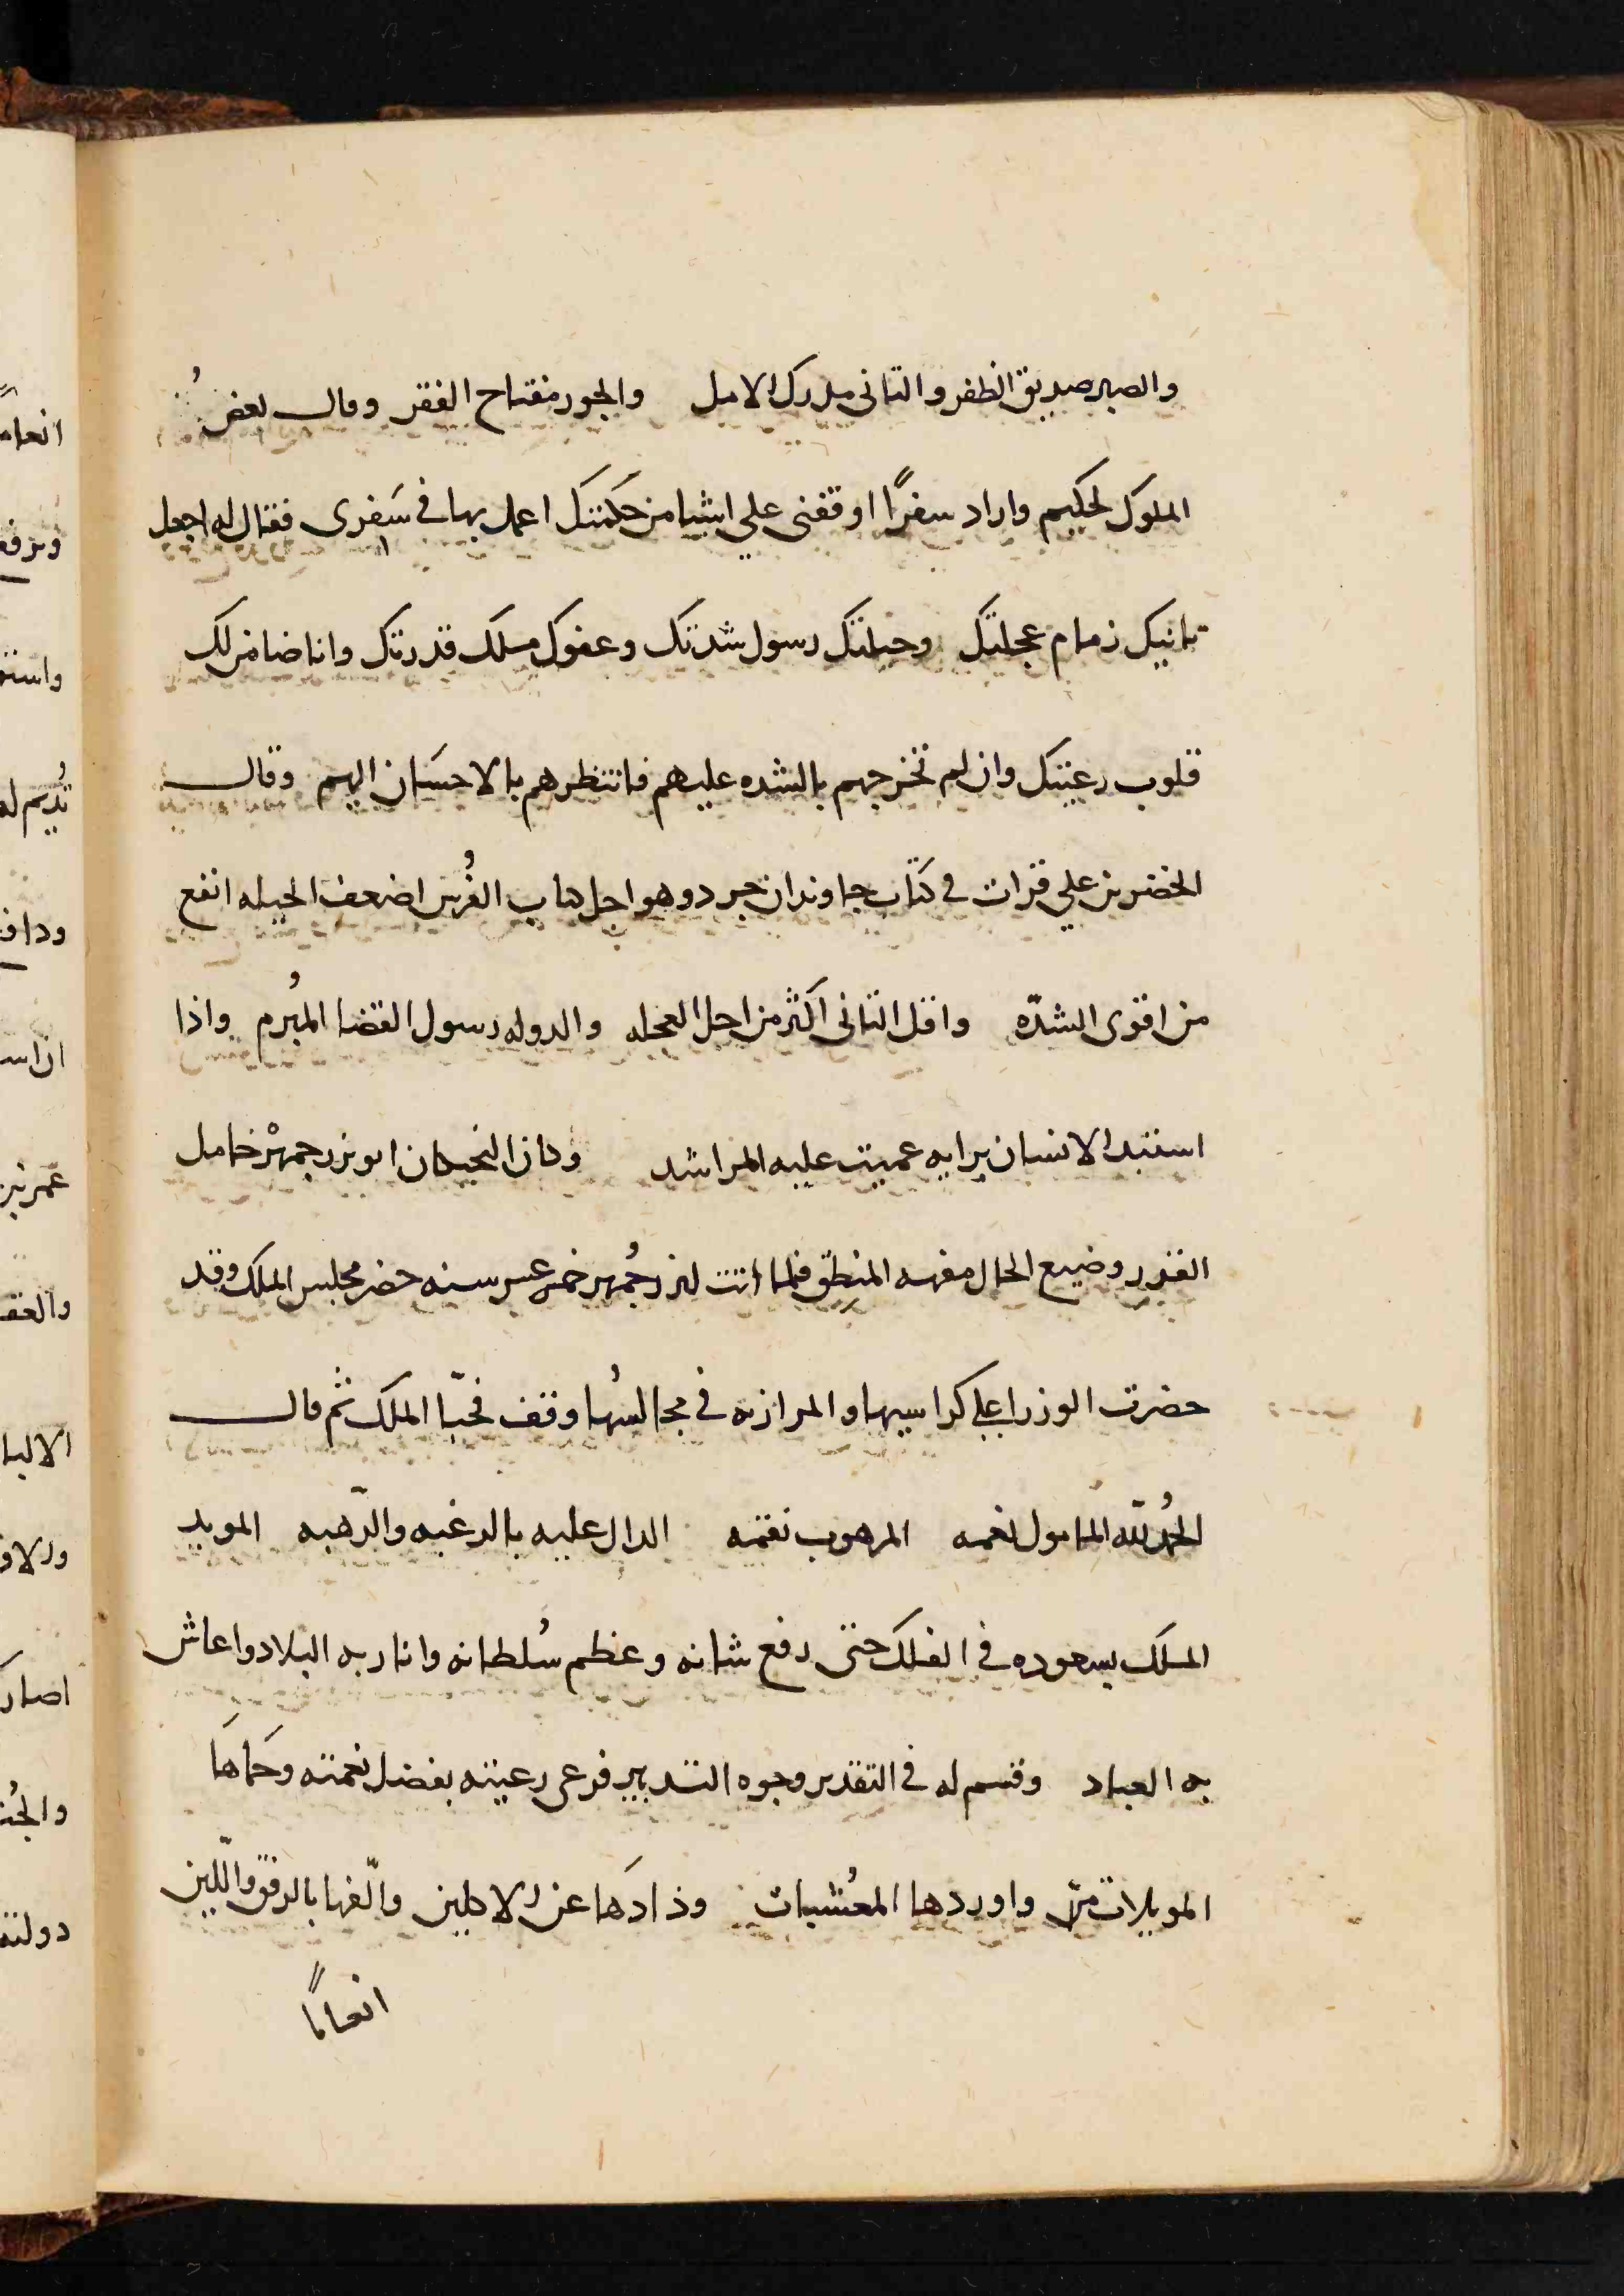 والصبر صديق الظفر والتانى مدرك الامل والجور مفتاح الفقر وقال بعض
الملوك لحكيم واراد سفرًا اوقفنى على اشيا من حكمتك اعمل بها فى سَفرى فقال له اجعل
تانيك زمام عجلتك وحيلتك رسول شدتك وعفوك مسلك قدرتك وانا ضامن لك
قلوب رعيتك وان لم تخرجهم بالشده عليهم فانتظرهم بالاحسَان اليهم وقال
الخضر بن على قرات فى كتاب جاوندان جرد وهو اجل كتاب الفُرس اضعف الحيله انفع
من اقوى الشدّه واقل التانى اكثر من اجل العجله والدوله رسول القضا المبُرم واذا
استبد الانسان برايه عميت عليه المراشد وكان البختكان ابو بزرجمهْر خامل
القدر وضيع الحال مفهه المنطق فلما اتت لبزرجُمهر خمس عشر سنه حضر مجلس الملك وقد
حضرت الوزرا على كراسيها والمرازبه فى مجالسُها وقف فحيّا الملك ثم قال
الحمُد للّه المامول نعمه المرهوب نقمه الدال عليه بالرغبه والرّهبه المويد
الملك بسعوده فى الفلك حتى رفع شانه وعظم سُلطانه وانار به البلاد واعاش
به العباد وقسم له فى التقدير وجوه التدبير فرعى رعيته بفضل نعمته وحَماهَا
الموبلات منّ واوردها المعُشبات وذادَها عن الاكلين والّفها بالرفق واللّين
انعامًا